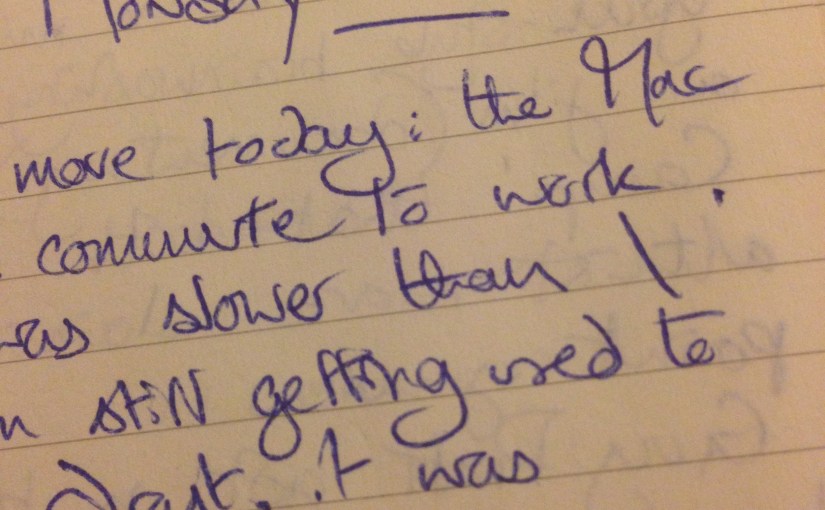 move today: the Mac
commute to work.
was slower than I
still getting used to
it was